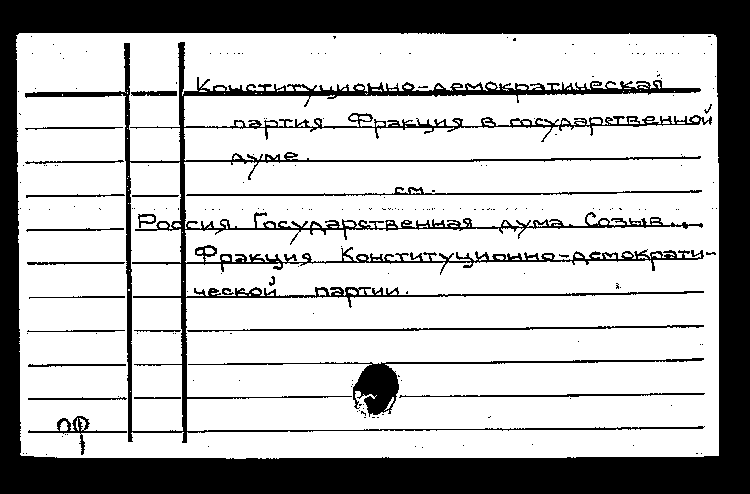 Конституционно-демократическая
партия Фракция в государственной
думе.
см.
Россия. Государственная дума. Созыв...
Фракция Конституционно-демократи-
ческой партии.
ПФ